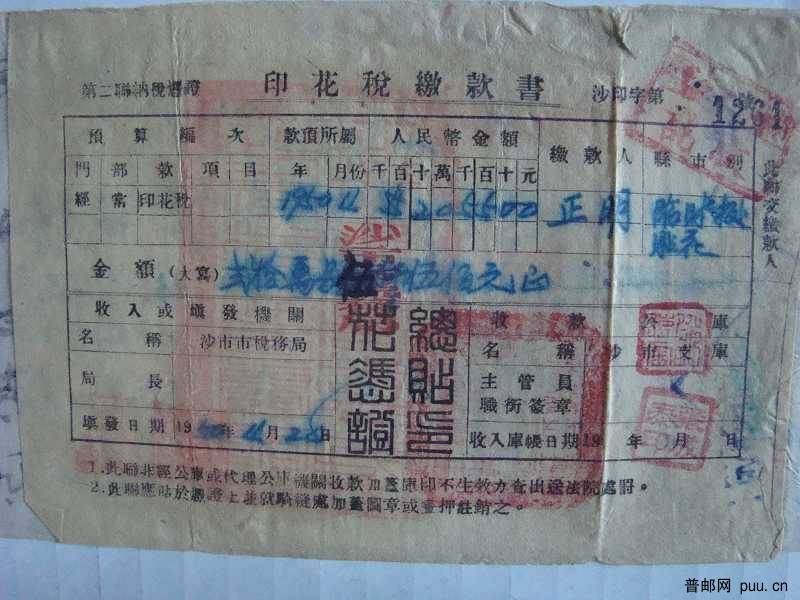 第二聯納稅憑證 印花稅繳款書 沙印字第 1261
預算編次 款項所屬 人民幣金額 繳款人 縣市別
門 部 款 項 目 年 月份 千百十萬千百十元
經常 印花稅 1950 11 205500 正明 臨時報
金額(大寫) 貳拾萬 伍仟伍佰元正
收入或填發機關
名稱 沙市市稅務局
局長
填發日期 19 年 11 月 日
總貼印
花憑證
收款公庫
名稱 沙市支庫
主管員
職銜簽章
收入庫帳日期 19 年 月 日
此聯交繳款人
1.此聯非經公庫或代理公庫機關收款加蓋庫印不生效力查出送法院處罰。
2.此聯應貼於憑證上並就騎縫處加蓋圖章或畫押註銷之。
普邮网 puu.cn